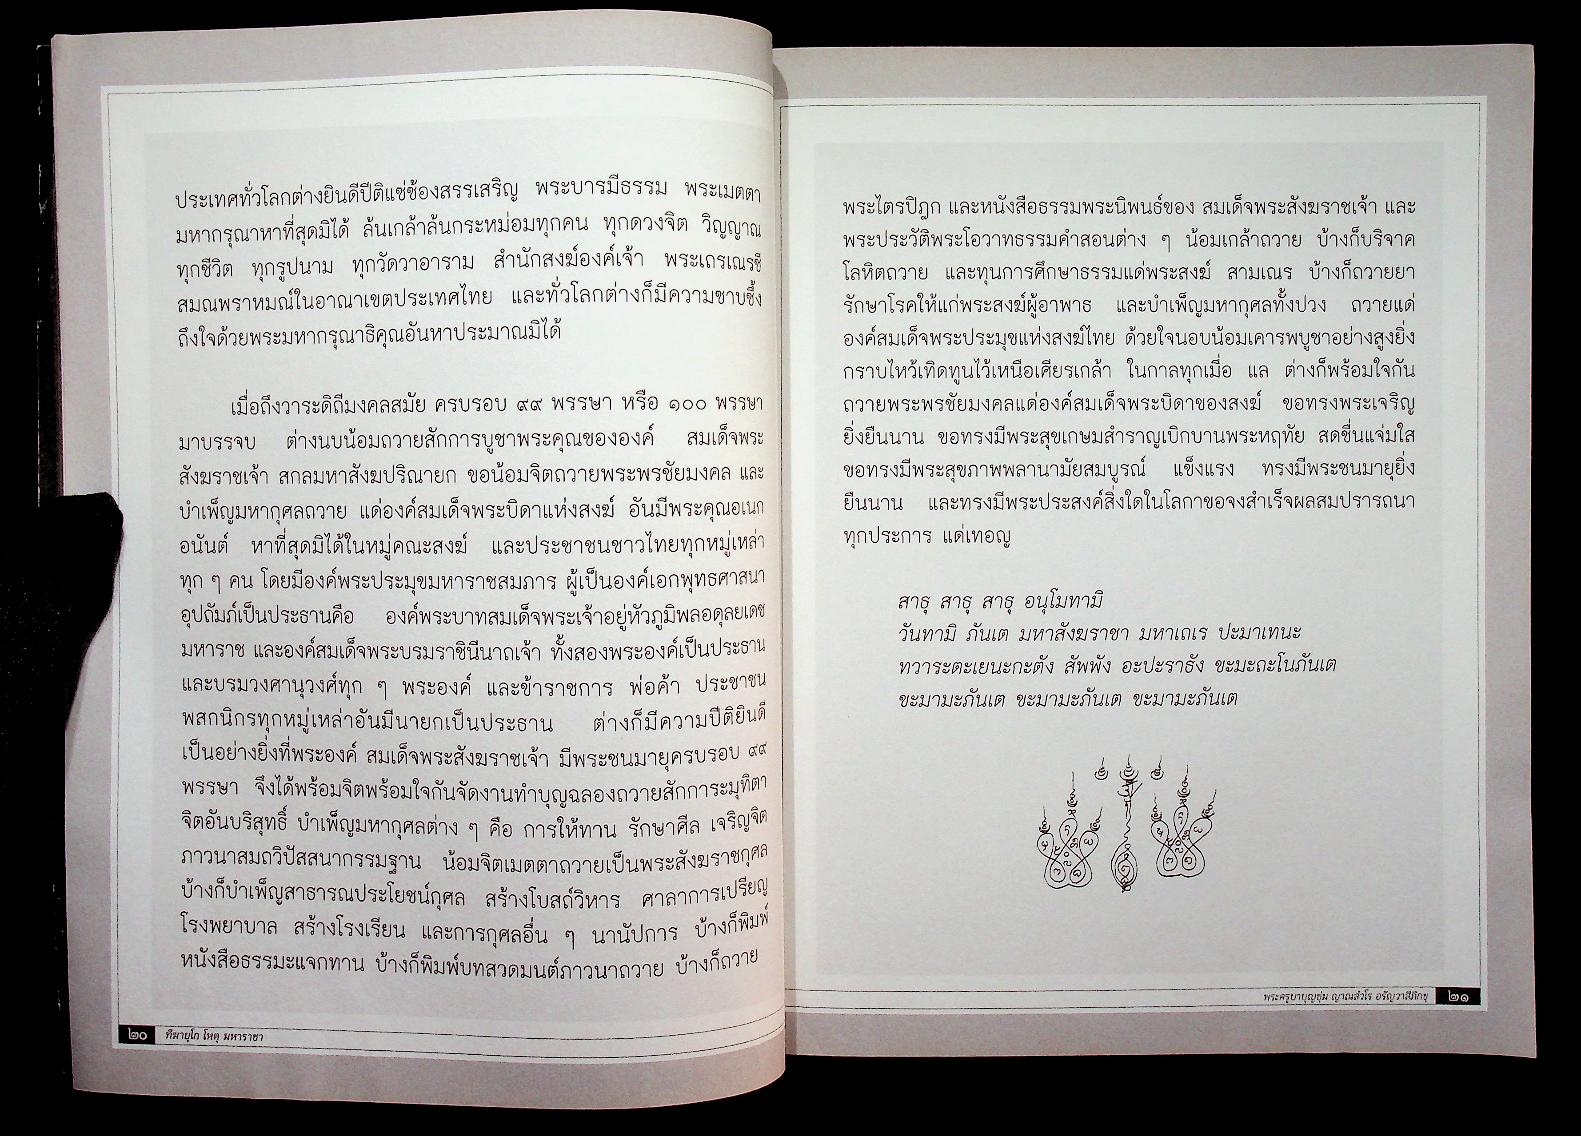 ประเทศทั่วโลกต่างยินดีปีติแซ่ซ้องสรรเสริญ พระบารมีธรรม พระเมตตา
มหากรุณาหาที่สุดมิได้ ล้นเกล้าล้นกระหม่อมทุกคน ทุกดวงจิต วิญญาณ
ทุกชีวิต ทุกรูปนาม ทุกวัดวาอาราม สำนักสงฆ์องค์เจ้า พระเถรเณรชี
สมณพราหมณ์ในอาณาเขตประเทศไทย และทั่วโลกต่างก็มีความซาบซึ้ง
ถึงใจด้วยพระมหากรุณาธิคุณอันหาประมาณมิได้
เมื่อถึงวาระดิถีมงคลสมัย ครบรอบ ๙๙ พรรษา หรือ ๑๐๐ พรรษา
มาบรรจบ ต่างนบน้อมถวายสักการบูชาพระคุณขององค์ สมเด็จพระ
สังฆราชเจ้า สกลมหาสังฆปริณายก ขอน้อมจิตถวายพระพรชัยมงคล และ
บำเพ็ญมหากุศลถวาย แด่องค์สมเด็จพระบิดาแห่งสงฆ์ อันมีพระคุณอเนก
อนันต์ หาที่สุดมิได้ในหมู่คณะสงฆ์ และประชาชนชาวไทยทุกหมู่เหล่า
ทุก ๆ คน โดยมีองค์พระประมุขมหาราชสมภาร ผู้เป็นองค์เอกพุทธศาสนา
อุปถัมภ์เป็นประธานคือ องค์พระบาทสมเด็จพระเจ้าอยู่หัวภูมิพลอดุลยเดช
มหาราช และองค์สมเด็จพระบรมราชินีนาถเจ้า ทั้งสองพระองค์เป็นประธาน
และบรมวงศานุวงศ์ทุก ๆ พระองค์ และข้าราชการ พ่อค้า ประชาชน
พสกนิกรทุกหมู่เหล่าอันมีนายกเป็นประธาน ต่างก็มีความปีติยินดี
เป็นอย่างยิ่งที่พระองค์ สมเด็จพระสังฆราชเจ้า มีพระชนมายุครบรอบ ๙๙
พรรษา จึงได้พร้อมจิตพร้อมใจกันจัดงานทำบุญฉลองถวายสักการะมุทิตา
จิตอันบริสุทธิ์ บำเพ็ญมหากุศลต่าง ๆ คือ การให้ทาน รักษาศีล เจริญจิต
ภาวนาสมถวิปัสสนากรรมฐาน น้อมจิตเมตตาถวายเป็นพระสังฆราชกุศล
บ้างก็บำเพ็ญสาธารณประโยชน์กุศล สร้างโบสถ์วิหาร ศาลาการเปรียญ
โรงพยาบาล สร้างโรงเรียน และการกุศลอื่น ๆ นานัปการ บ้างก็พิมพ์
หนังสือธรรมะแจกทาน บ้างก็พิมพ์บทสวดมนต์ภาวนาถวาย บ้างก็ถวาย
๒๐ ทีฆายุโก โหตุ มหาราชา
พระไตรปิฎก และหนังสือธรรมพระนิพนธ์ของ สมเด็จพระสังฆราชเจ้า และ
พระประวัติพระโอวาทธรรมคำสอนต่าง ๆ น้อมเกล้าถวาย บ้างก็บริจาค
โลหิตถวาย และทุนการศึกษาธรรมแด่พระสงฆ์ สามเณร บ้างก็ถวายยา
รักษาโรคให้แก่พระสงฆ์ผู้อาพาธ และบำเพ็ญมหากุศลทั้งปวง ถวายแด่
องค์สมเด็จพระประมุขแห่งสงฆ์ไทย ด้วยใจนอบน้อมเคารพบูชาอย่างสูงยิ่ง
กราบไหว้เทิดทูนไว้เหนือเศียรเกล้า ในกาลทุกเมื่อ แล ต่างก็พร้อมใจกัน
ถวายพระพรชัยมงคลแด่องค์สมเด็จพระบิดาของสงฆ์ ขอทรงพระเจริญ
ยิ่งยืนนาน ขอทรงมีพระสุขเกษมสำราญเบิกบานพระหฤทัย สดชื่นแจ่มใส
ขอทรงมีพระสุขภาพพลานามัยสมบูรณ์ แข็งแรง ทรงมีพระชนมายุยิ่ง
ยืนนาน และทรงมีพระประสงค์สิ่งใดในโลกาขอจงสำเร็จผลสมปรารถนา
ทุกประการ แด่เทอญ
สาธุ สาธุ สาธุ อนุโมทามิ
วันทามิ ภันเต มหาสังฆราชา มหาเถเร ปะมาเทนะ
ทวาระตะเยนะกะตัง สัพพัง อะปะราธัง ขะมะถะโนภันเต
ขะมามะภันเต ขะมามะภันเต ขะมามะภันเต
พระครูบาบุญชุ่ม ญาณสํวโร อรัญวาสีภิกขุ ๒๑